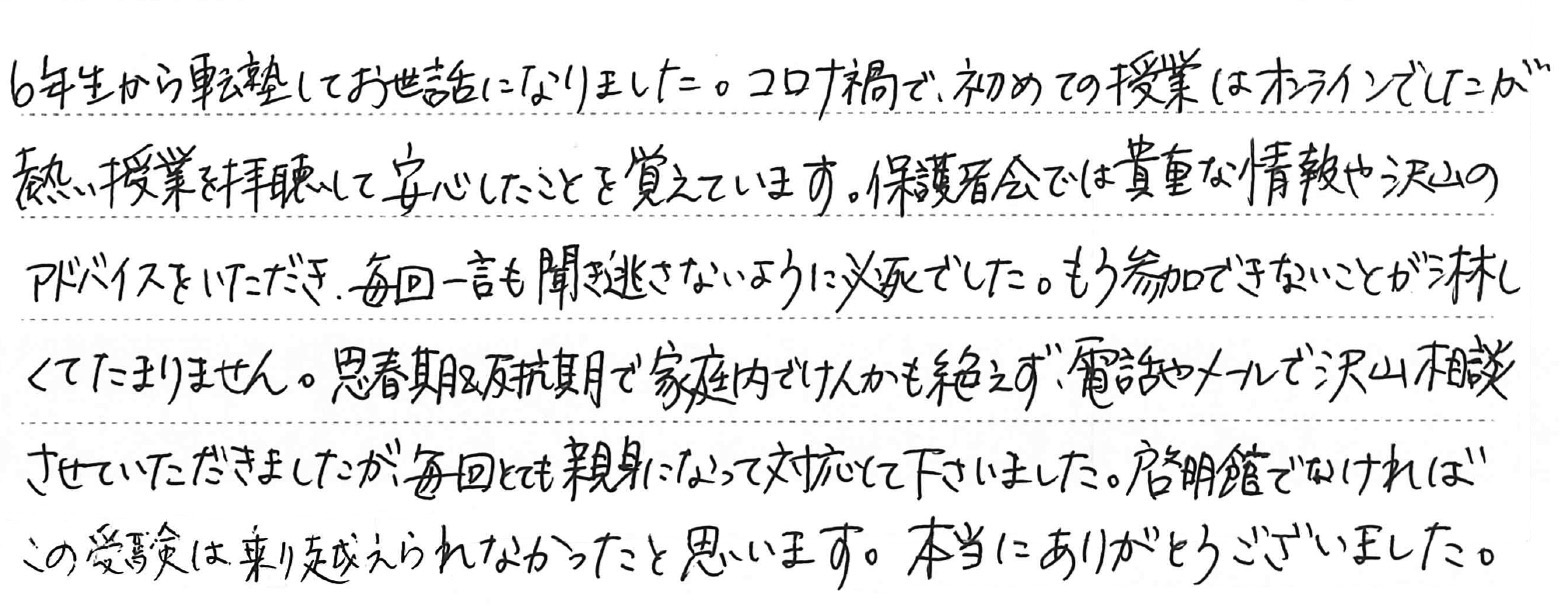 6年生から転塾してお世話になりました。コロナ禍で、初めての授業はオンラインでしたが
熱い授業を拝聴して安心したことを覚えています。保護者会では貴重な情報や沢山の
アドバイスをいただき、毎回一言も聞き逃さないように必死でした。もう参加できないことが淋し
くてたまりません。思春期&反抗期で家庭内でけんかも絶えず、電話やメールで沢山相談
させていただきましたが、毎回とても親身になって対応して下さいました。啓明館でなければ
この受験は乗り越えられなかったと思います。本当にありがとうございました。